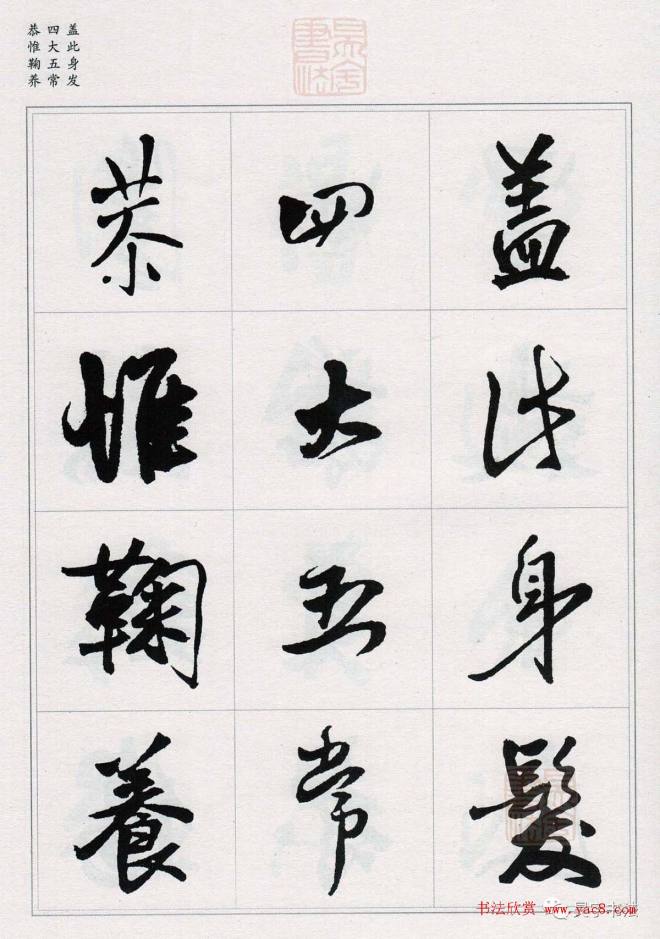 盖此身发
四大五常
恭惟鞠养
蓋此身髮
四大五常
恭惟鞠養
书法欣赏 www.yac8.com